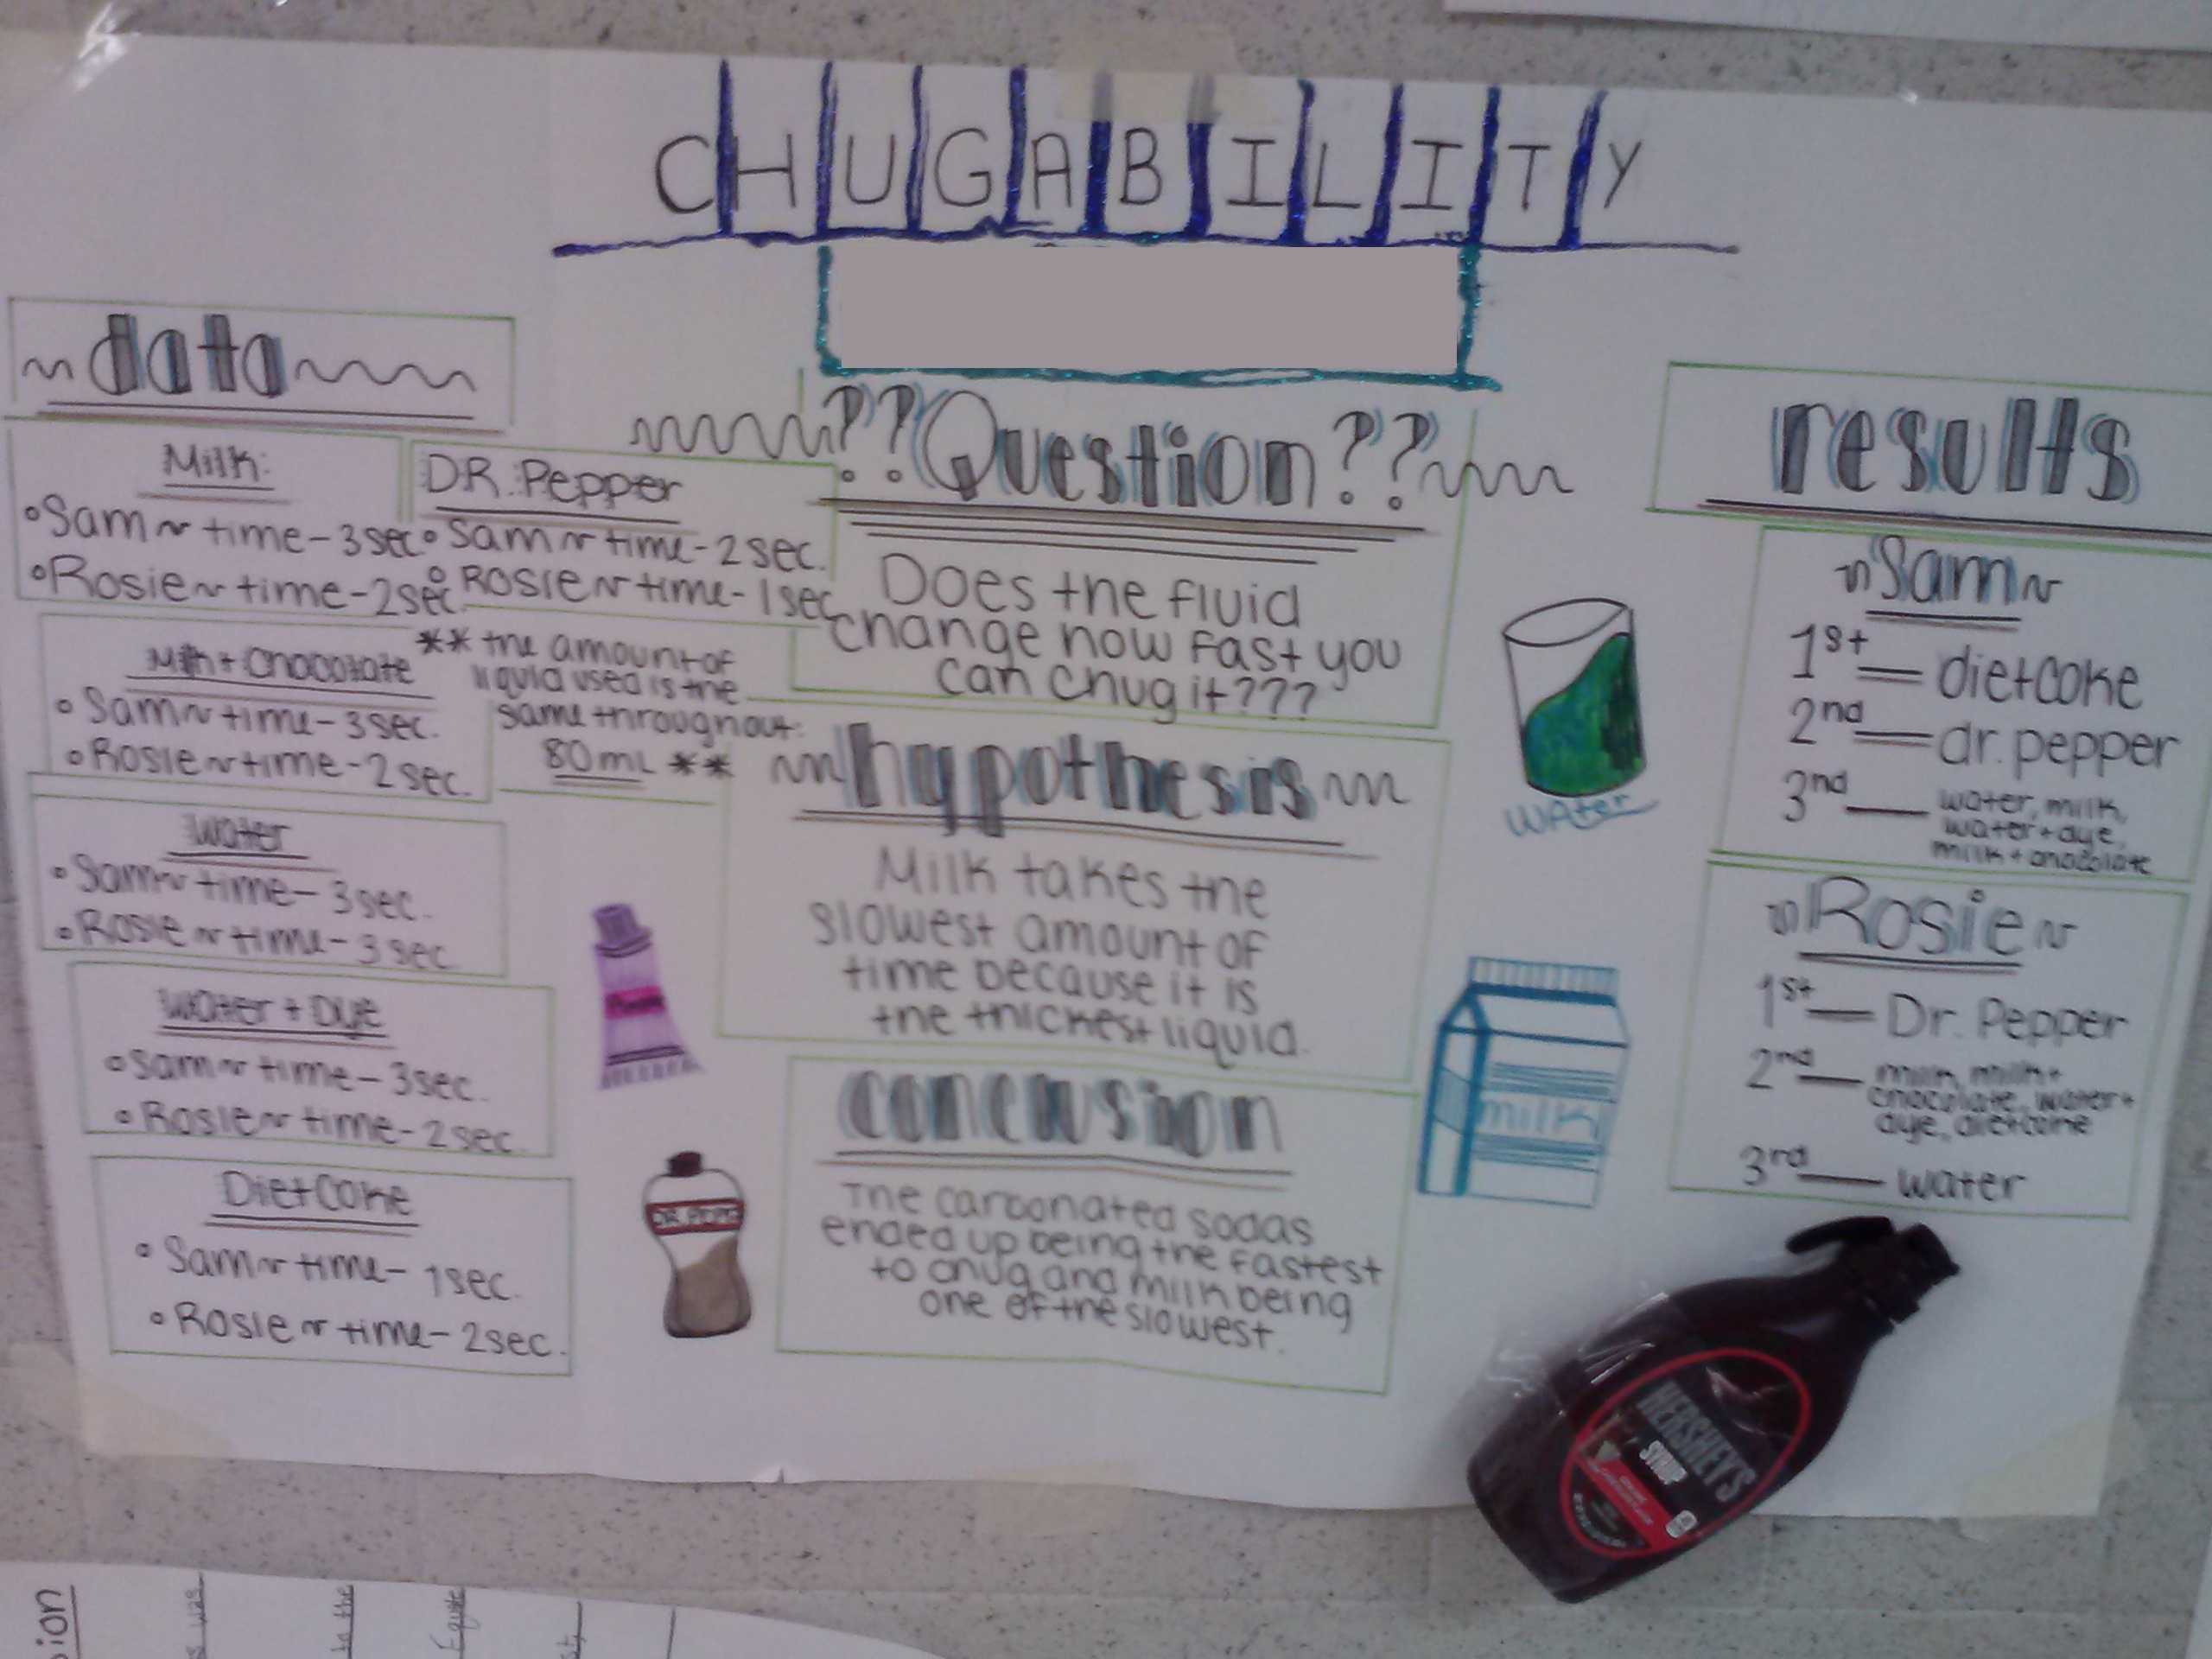 CHUGABILITY
~data~~~
Milk:
°Sam~time-3sec
°Rosie~time-2sec.
DR. Pepper
°Sam~time-2sec.
°Rosie~time-1sec
Milk+Chocolate
°Sam~time-3sec.
°Rosie~time-2sec.
** the amount of
liquid used is the
same throughout:
80mL **
Water
•Sam~time-3sec.
•Rosie~time-3sec.
Water + Dye
°Sam~time-3sec.
°Rosie~time-2sec.
Diet Coke
°Sam~time-1sec.
°Rosie~time-2sec.
??Question??
Does the fluid
change how fast you
can chug it???
~hypothesis~
Milk takes the
slowest amount of
time because it is
the thickest liquid.
conclusion
The carbonated sodas
ended up being the fastest
to chug and milk being
one of the slowest.
WAter
milk
DR. PEPP
results
~Sam~
1st — diet coke
2nd — dr. pepper
3nd — water, milk,
water+dye,
milk+chocolate
~Rosie~
1st — Dr. Pepper
2nd — milk, milk+
chocolate, water+
dye, diet coke
3rd — water
HERSHEY'S
SYRUP
sion
s was
to the
Equate